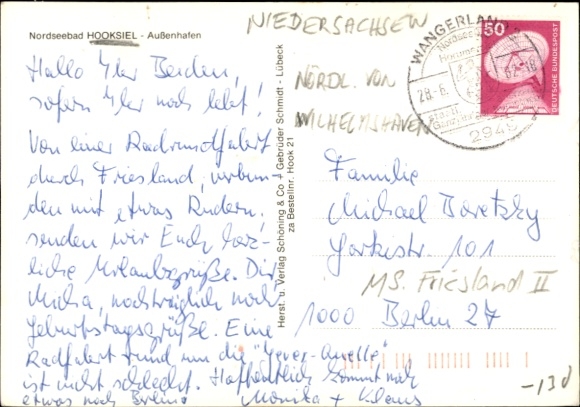 Nordseebad HOOKSIEL - Außenhafen
NIEDERSACHSEN
NÖRDL. VON
WILHELMSHAVEN
Hallo Ihr Beiden,
sofern Ihr noch lebt!
Von einer Radrundfahrt
durch Friesland, verbun
den mit etwas Rudern,
senden wir Euch herz-
liche Urlaubsgrüße. Dir
Micha, nachträglich noch
Geburtstagsgrüße. Eine
Radfahrt rund um die "Jever-Quelle"
ist nicht schlecht. Hoffentlich kommt ihr
etwas nach Berlin.
Monika + Klaus
Herst. u. Verlag Schöning & Co + Gebrüder Schmidt - Lübeck
za Bestellnr. Hook 21
WANGERLAND
Nordsee
28.-6.
2949
50
DEUTSCHE BUNDESPOST
Familie
Michael Boretzky
Yorkstr. 101
MS. Friesland II
1000 Berlin 27
-13d